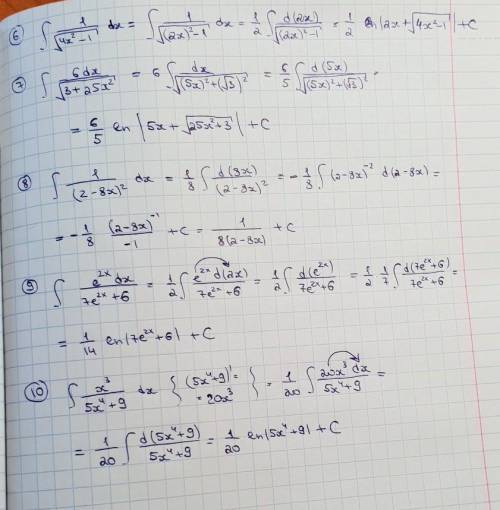 6) ∫ 1/√(4x²-1) dx = ∫ 1/√((2x)²-1) dx = 1/2 ∫ d(2x)/√((2x)²-1) = 1/2 ln|2x+√(4x²-1)| + C
7) ∫ 6dx/√(3+25x²) = 6 ∫ dx/√((5x)²+(√3)²) = 6/5 ∫ d(5x)/√((5x)²+(√3)²) =
= 6/5 ln|5x+√(25x²+3)| + C
8) ∫ 1/(2-8x)² dx = 1/8 ∫ d(8x)/(2-8x)² = -1/8 ∫ (2-8x)⁻² d(2-8x) =
= -1/8 (2-8x)⁻¹/-1 + C = 1/8(2-8x) + C
9) ∫ e²ˣdx/7e²ˣ+6 = 1/2 ∫ e²ˣd(2x)/7e²ˣ+6 = 1/2 ∫ d(e²ˣ)/7e²ˣ+6 = 1/2 1/7 ∫ d(7e²ˣ+6)/7e²ˣ+6 =
= 1/14 ln|7e²ˣ+6| + C
10) ∫ x³/5x⁴+9 dx { (5x⁴+9)' = = 20x³ } = 1/20 ∫ 20x³dx/5x⁴+9 =
= 1/20 ∫ d(5x⁴+9)/5x⁴+9 = 1/20 ln|5x⁴+9| + C